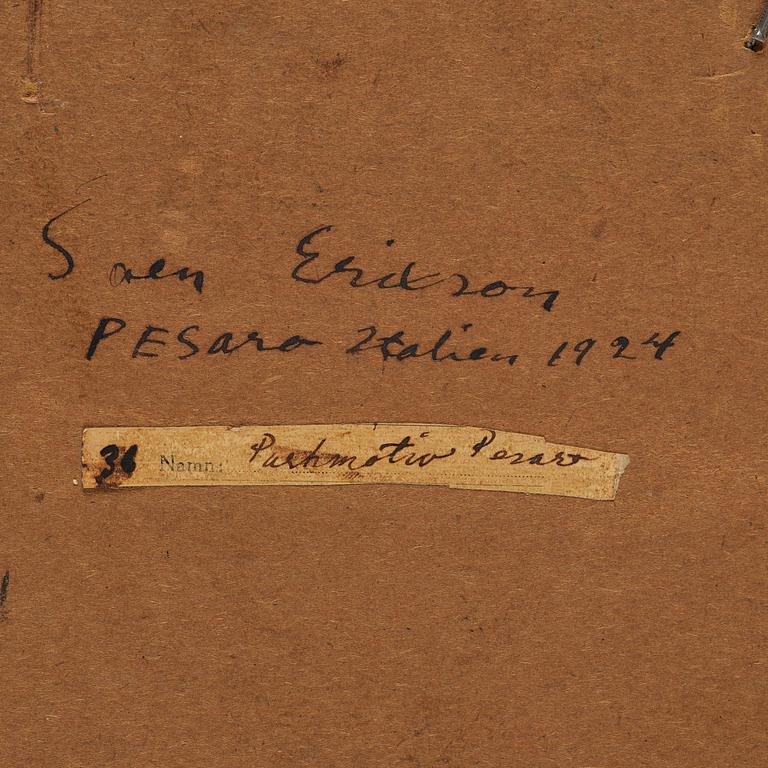 Sven Erixson
PESaro Italien 1924
36 Namn: Parkmotiv Pesaro